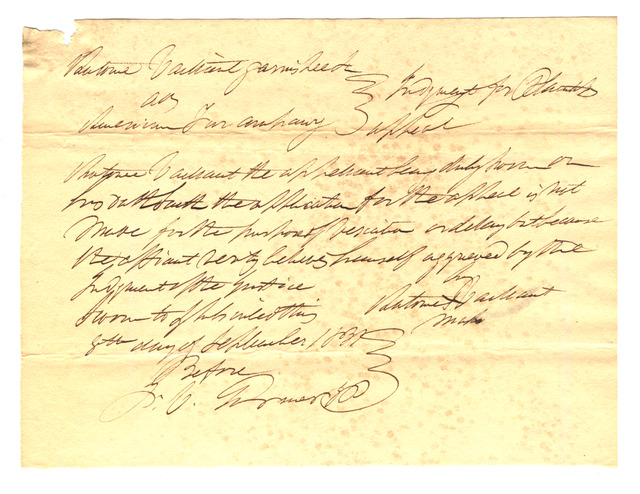 Antoine Vaillant garnishee
ads } Judgment for Plaintiff
American Fur Company } appeal
Antoine Vaillant the appellant being duly sworn on
his oath saith the application for the appeal is not
made for the purpose of vexation or delay but because
the affiant verily believes himself aggrieved by the
Judgment of the Justice
his
Sworn to & subscribed this
Antoine X Vaillant
mark
8th day of September
Before